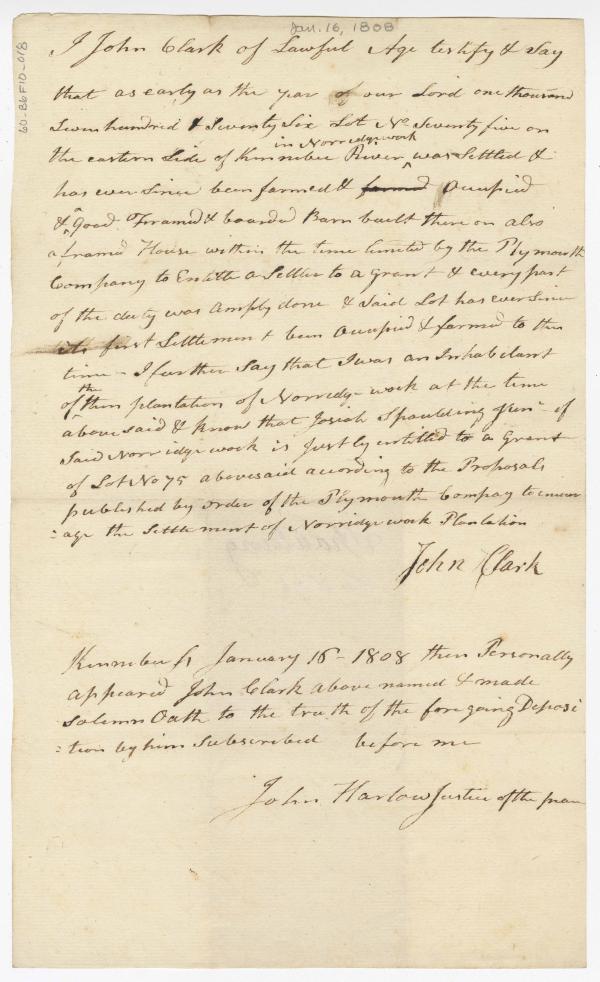 Jan. 16, 1808
60-B6F10-018
I John Clark of Lawful Age testify & Say
that as early as the year of our Lord one thousand
Seven hundred & Seventy Six Lot No Seventy five on
the eastern Side of Kennebec River ^ in Norridgework was Settled &
has ever Since been farmed & farmed Ocupied
& ^ Good Framed & boarded Barn built there on also
a framed House within the time limited by the Plymouth
Company to Entitle a Settler to a Grant & every part
of the duty was Amply done & Said Lot has ever Since
its first Settlement been Ocupied & farmed to this
time – I further Say that I was an Inhabetant
of the then plantation of Norridgework at the time
above said & know that Josiah Spaulding Junr of
Said Norridgework is Justly entitled to a Grant
of Lot No 75 abovesaid acording to the Proposals
published by order of the Plymouth Compay to incour
=age the Settlement of Norridgework Plantation
John Clark
Kennebec ss January 16 – 1808 then Personally
appeared John Clark above named & made
Solemn Oath to the truth of the foregoing Deposi
=tion by him Subscribed before me
John Harlow Justice of the peace